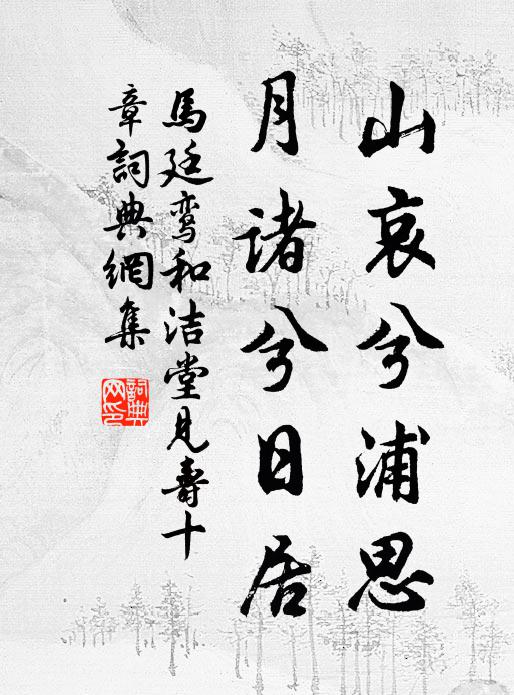 山哀兮浦思
月诸兮日居
馬廷鸾和洁堂見壽十
章詞典網集
詞典
网印